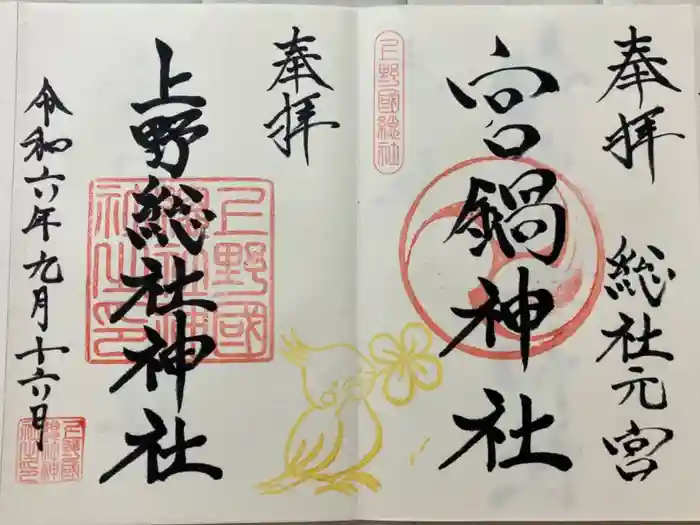 奉拝
総社元宮
宮鍋神社
上野國総社
奉拝
上野総社神社
上野國
総社神
社之印
令和六年九月十六日
上野國
総社神
社之印